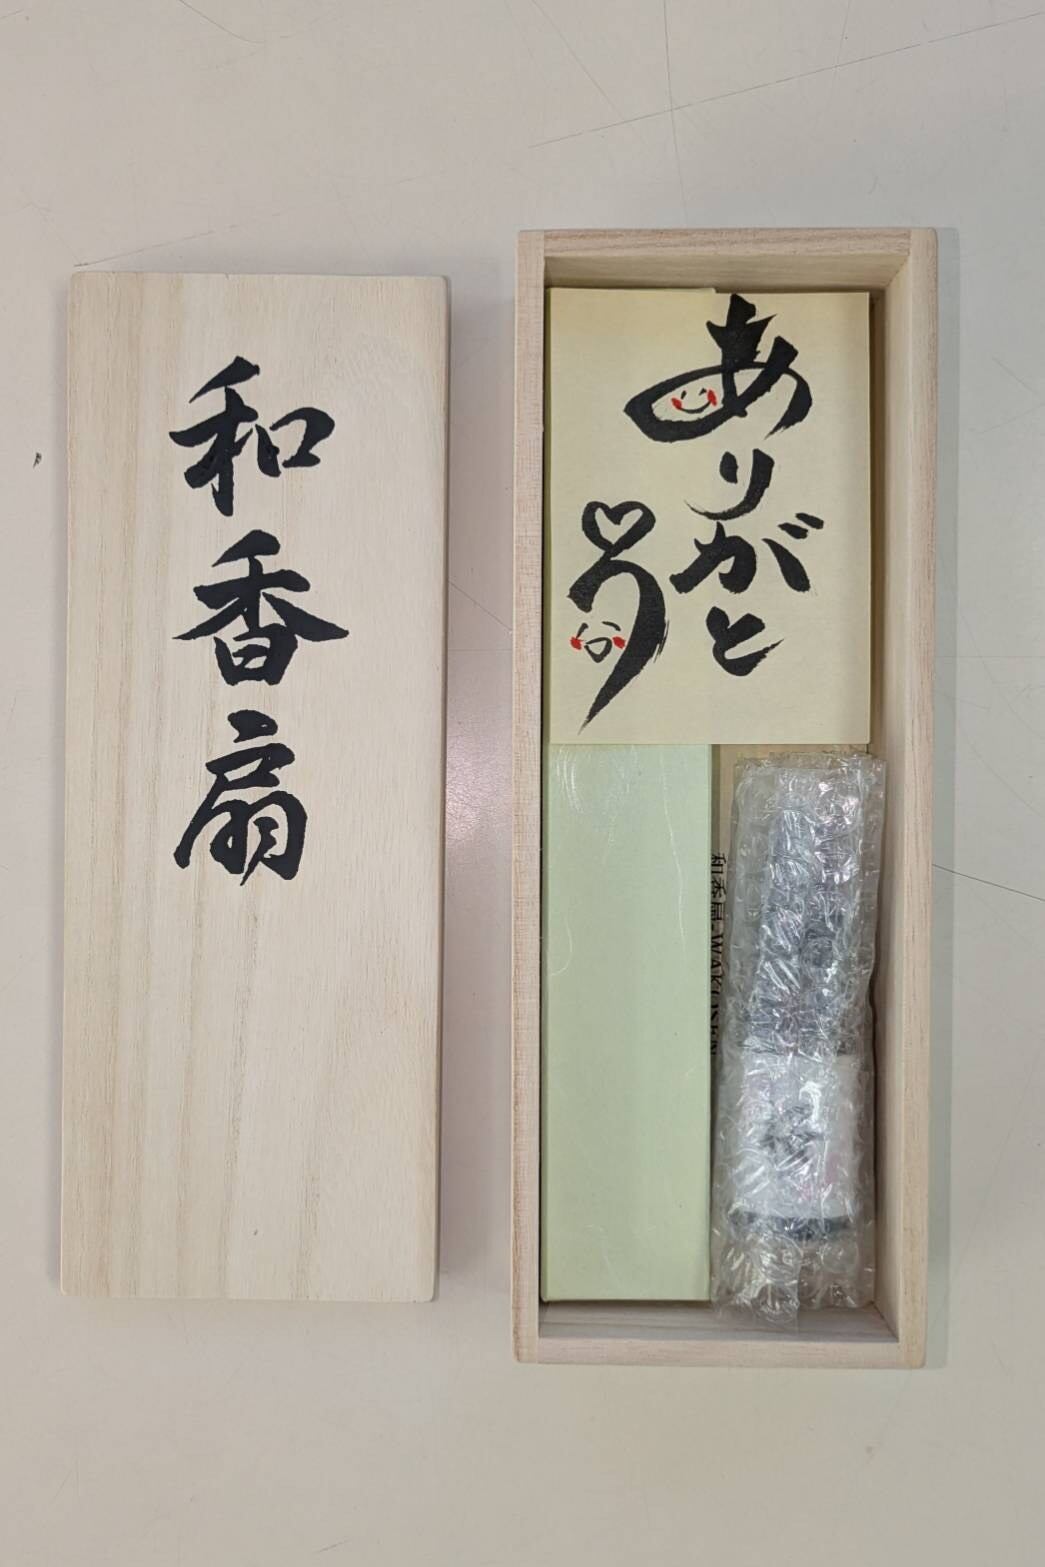 和香扇
ありがと
う
和香扇・WAKOUSEN